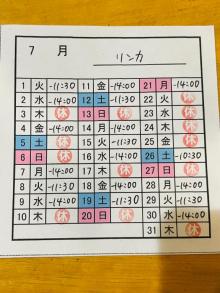 7 月 リンカ
1 火 -11:30 11 金 -14:00 21 月 -14:00
2 水 -14:00 12 土 -11:30 22 火 休
3 木 休 13 日 休 23 水 休
4 金 -14:00 14 月 -14:00 24 木 休
5 土 休 15 火 -11:30 25 金 休
6 日 休 16 水 -14:00 26 土 -10:30
7 月 -14:00 17 木 休 27 日 休
8 火 -11:30 18 金 -14:00 28 月 休
9 水 -14:00 19 土 -11:30 29 火 休
10 木 休 20 日 休 30 水 休
31 木 休